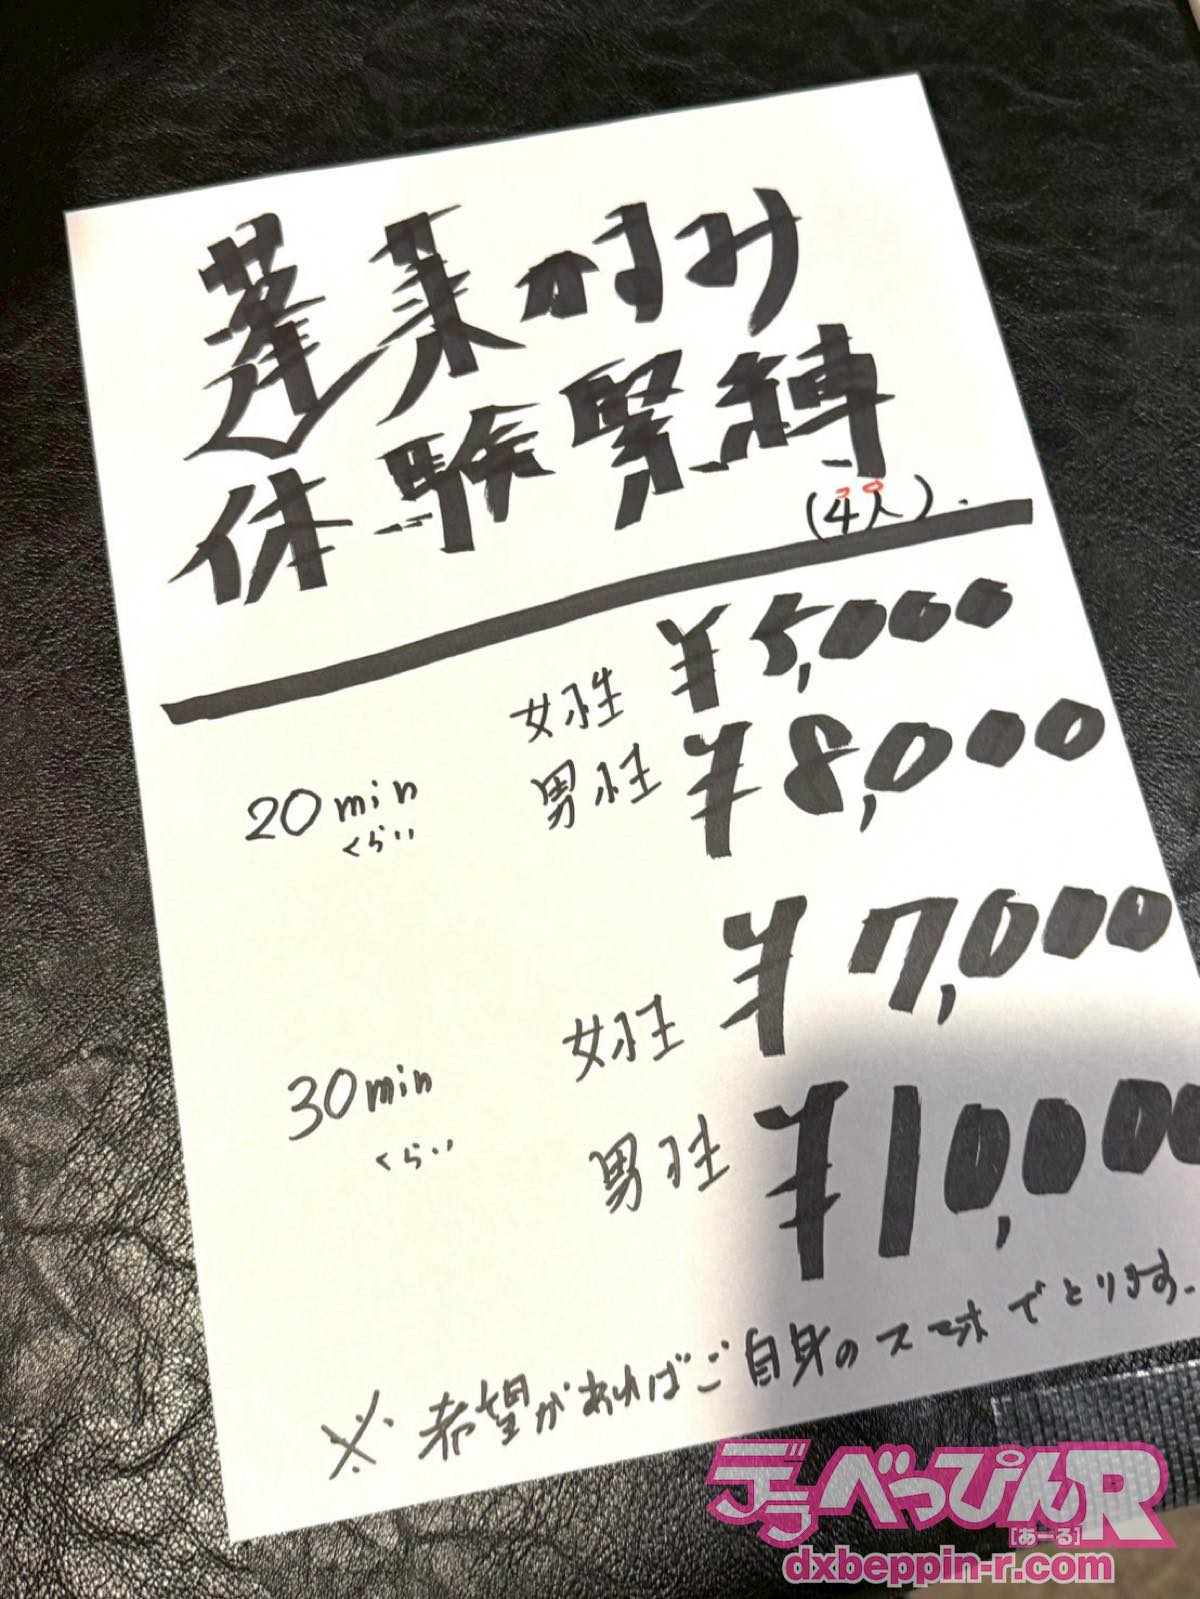 蓬莱かすみ
体験緊縛
(4人).
女性 ¥5,000
20min くらい 男性 ¥8,000
女性 ¥7,000
30min くらい 男性 ¥10,000
※希望があればご自身のスマホでとります.
デラべっぴんR
[あーる]
dxbeppin-r.com